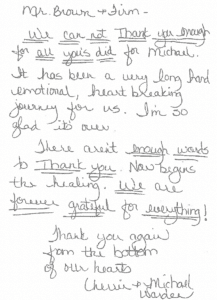 Mr. Brown + Firm -
We can not Thank you enough
for all you's did for Michael.
It has been a very long hard
emotional, heart breaking
journey for us. I'm so
glad its over.
There aren't enough words
to Thank you. Now begins
the healing. We are
forever grateful for everything!
Thank you again
from the bottom
of our hearts
Cherrie + Michael